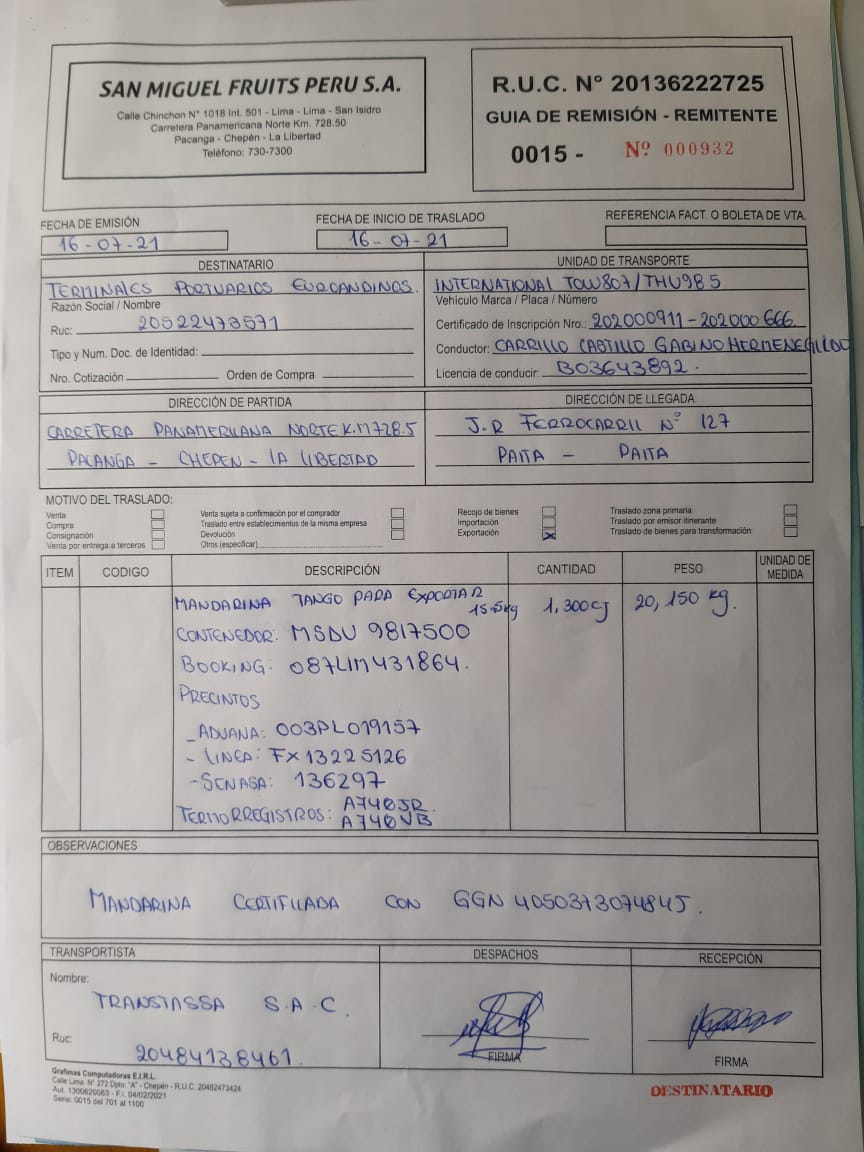 SAN MIGUEL FRUITS PERU S.A.
Calle Chinchon N° 1018 Int. 501 - Lima - Lima - San Isidro
Carretera Panamericana Norte Km. 728.50
Pacanga - Chepén - La Libertad
Teléfono: 730-7300
R.U.C. N° 20136222725
GUIA DE REMISIÓN - REMITENTE
0015 - Nº 000932
FECHA DE EMISIÓN
16-07-21
FECHA DE INICIO DE TRASLADO
16-07-21
REFERENCIA FACT. O BOLETA DE VTA.
DESTINATARIO
TERMINALES PORTUARIOS EUROANDINOS.
Razón Social / Nombre
Ruc: 20522473571
Tipo y Num. Doc. de Identidad:
Nro. Cotización Orden de Compra
UNIDAD DE TRANSPORTE
INTERNATIONAL TOW807/THU985
Vehículo Marca / Placa / Número
Certificado de Inscripción Nro.: 202000911-202000666.
Conductor: CARRILLO CASTILLO GABINO HERMENEGILDO
Licencia de conducir: B03643892.
DIRECCIÓN DE PARTIDA
CARRETERA PANAMERICANA NORTE K.M 728.5
PACANGA - CHEPEN - LA LIBERTAD
DIRECCIÓN DE LLEGADA
J.R FERROCARRIL Nº 127
PAITA - PAITA
MOTIVO DEL TRASLADO:
Venta
Compra
Consignación
Venta por entrega a terceros
Venta sujeta a confirmación por el comprador
Traslado entre establecimientos de la misma empresa
Devolución
Otros (especificar)
Recojo de bienes
Importación
Exportación X
Traslado zona primaria
Traslado por emisor itinerante
Traslado de bienes para transformación
ITEM CODIGO DESCRIPCIÓN CANTIDAD PESO UNIDAD DE MEDIDA
MANDARINA TANGO PARA EXPORTAR 15.5kg 1,300CJ 20,150 kg.
CONTENEDOR: MSDU 9817500
BOOKING: 087LIM431864.
PRECINTOS
- ADUANA: 003PL019157
- LINEA: FX13225126
- SENASA: 136297
TERMORREGISTROS: A740JR
A740VB
OBSERVACIONES
MANDARINA CERTIFICADA CON GGN 4050373074845.
TRANSPORTISTA
Nombre:
TRANSTASSA S.A.C.
Ruc:
20484138461
DESPACHOS
FIRMA
RECEPCIÓN
FIRMA
Grafimas Computadoras E.I.R.L.
Calle Lima N° 272 Dpto. "A" - Chepén - R.U.C. 20482473424
Aut. 1300620063 - F.I. 04/02/2021
Serie: 0015 del 701 al 1100
DESTINATARIO